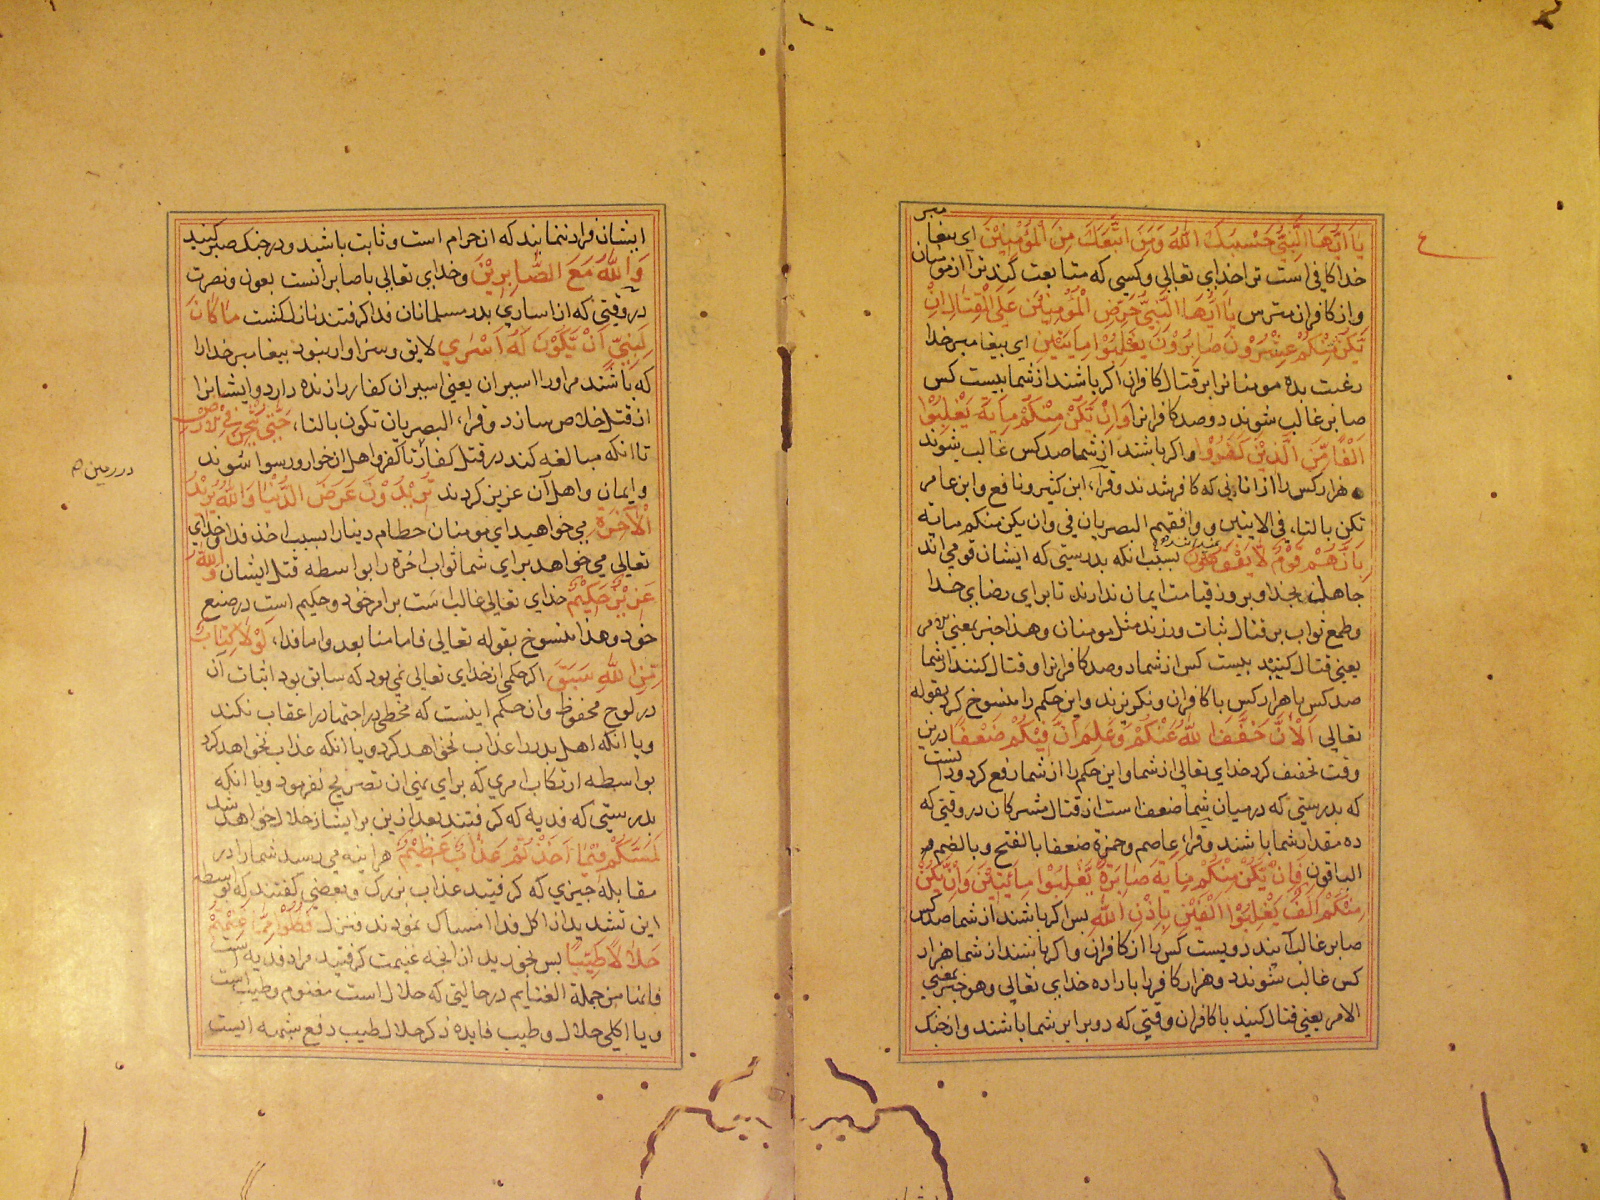 یَا اَیُّهَا النَّبِیُّ حَسْبُکَ اللّٰهُ وَمَنِ اتَّبَعَکَ مِنَ الْمُؤْمِنِیْنَ ای پیغامبر
خدا کافی است ترا خدای تعالی وکسی که متابعت کند ترا از مومنان
واز کافران مترس یَا اَیُّهَا النَّبِیُّ حَرِّضِ الْمُؤْمِنِیْنَ عَلَی الْقِتَالِ اِنْ
یَکُنْ مِنْکُمْ عِشْرُوْنَ صَابِرُوْنَ یَغْلِبُوْا مِایَتَیْنِ ای پیغامبر خدا
رغبت بده مومنانرا بر قتال کافران اکر باشند از شما بیست کس
صابر غالب شوند دوصد کافرانرا وَاِنْ تَکُنْ مِنْکُمْ مِایَةٌ یَغْلِبُوْا
اَلْفًا مِّنَ الَّذِیْنَ کَفَرُوْا واکر باشند از شما صد کس غالب شوند
هزار کس را از انانی که کافر شدند وقرأ ابن کثیر ونافع وابن عامر
تکن بالتاء فی الایتین ووافقهم البصریان فی وان یکن منکم مایة
بِاَنَّهُمْ قَوْمٌ لَّا یَفْقَهُوْنَ بسبب انکه بدرستی که ایشان قومی اند
جاهل بخدا وبروز قیامت ایمان ندارند تا برای رضای خدا
وطمع ثواب بر قتال ثبات ورزند مثل مومنان وهذا خبر بمعنی الامر
یعنی قتال کنید بیست کس از شما دوصد کافرانرا وقتال کنند از شما
صد کس با هزار کس با کافران ونکریزند واین حکم را منسوخ کرد بقوله
تعالی اَلْاٰنَ خَفَّفَ اللّٰهُ عَنْکُمْ وَعَلِمَ اَنَّ فِیْکُمْ ضَعْفًا درین
وقت تخفیف کرد خدای تعالی از شما واین حکم را از شما رفع کرد ودانست
که بدرستی که در میان شما ضعف است از قتال مشرکان در وقتی که
ده مقدار شما باشند وقرأ عاصم وحمزة ضعفا بالفتح وبالضم
الباقون فَاِنْ یَّکُنْ مِنْکُمْ مِایَةٌ صَابِرَةٌ یَّغْلِبُوْا مِایَتَیْنِ وَاِنْ یَّکُنْ
مِنْکُمْ اَلْفٌ یَغْلِبُوْا اَلْفَیْنِ بِاِذْنِ اللّٰهِ پس اکر باشند از شما صد کس
صابر غالب آیند دویست کس را از کافران واکر باشند از شما هزار
کس غالب شوند دو هزار کافر را باراده خدای تعالی وهو خبر بمعنی
الامر یعنی قتال کنید با کافران وقتی که دوبرابر شما باشند واز جنک
ایشان فرار ننمایند که ان حرام است وثابت باشید ودر جنک صبر کنید
وَاللّٰهُ مَعَ الصَّابِرِیْنَ وخدای تعالی با صابرانست بعون ونصرت
در وقتی که از اساری بدر مسلمانان فدا کرفتند نازل کشت مَا کَانَ
لِنَبِیٍّ اَنْ یَّکُوْنَ لَهُ اَسْرٰی لایق وسزاوار نبود پیغامبر خدا را
که باشند مر اورا اسیران یعنی اسیران کفار را زنده دارد وایشانرا
از قتل خلاص سازد وقرأ البصریان تکون بالتاء حَتّٰی یُثْخِنَ فِی الْاَرْضِ
تا انکه مبالغه کند در قتل کفار تا کفر واهل ان خوار ورسوا شوند
وایمان واهل آن عزیز کردند تُرِیْدُوْنَ عَرَضَ الدُّنْیَا وَاللّٰهُ یُرِیْدُ
الْاٰخِرَةَ می خواهید ای مومنان حطام دنیا را بسبب اخذ فدا وخدای
تعالی می خواهد برای شما ثواب اخرة را بواسطه قتل ایشان وَاللّٰهُ
عَزِیْزٌ حَکِیْمٌ خدای تعالی غالب است بر امر خود وحکیم است در صنع
خود وهذا منسوخ بقوله تعالی فاما منا بعد واما فداء لَوْلَا کِتَابٌ
مِّنَ اللّٰهِ سَبَقَ اکر حکمی از خدای تعالی نمی بود که سابق بود اثبات آن
در لوح محفوظ وان حکم اینست که مخطی در اجتهاد را عقاب نکند
ویا انکه اهل بدر را عذاب نخواهد کرد ویا انکه عذاب نخواهد کرد
بواسطه ارتکاب امری که برای نهی ان تصریح نفرمود ویا انکه
بدرستی که فدیه که کرفتند بعد ازین بر ایشان حلال خواهد شد
لَمَسَّکُمْ فِیْمَا اَخَذْتُمْ عَذَابٌ عَظِیْمٌ هراینه می رسید شمارا در
مقابله چیزی که کرفتید عذاب بزرک وبعضی کفتند که بواسطه
این تشدید از اکل فدا امساک نمودند فنزل فَکُلُوْا مِمَّا غَنِمْتُمْ
حَلَالًا طَیِّبًا پس بخورید از انچه غنیمت کرفتید مراد فدیه است
فانها من جملة الغنایم در حالیتی که حلال است مغنوم وطیب است
ویا اکلی حلال وطیب فایده ذکر حلال طیب دفع شبهه ایست